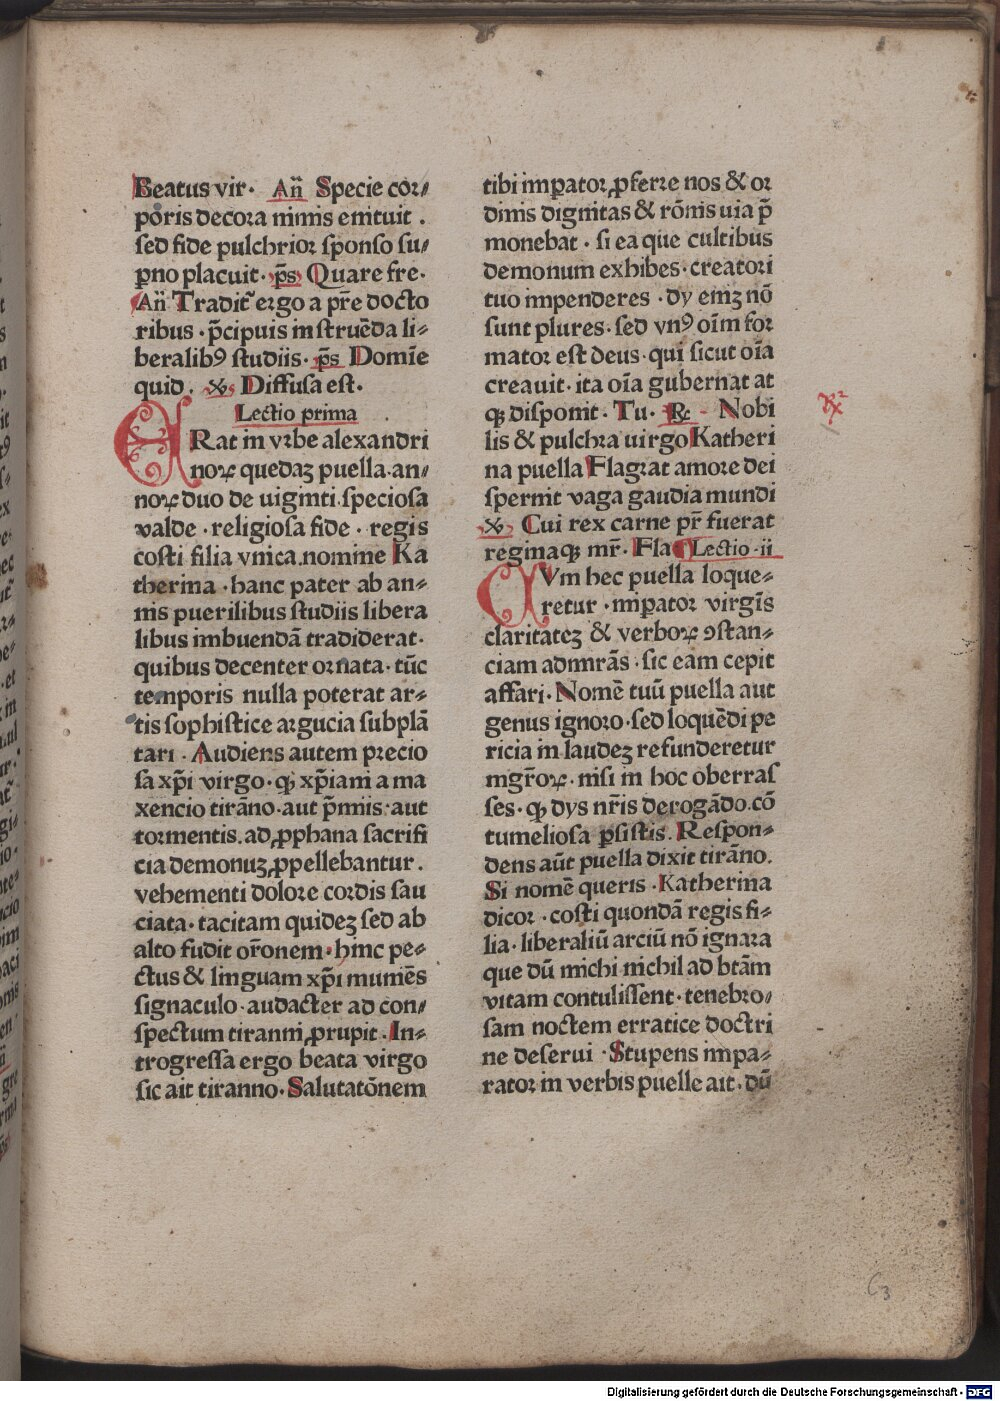 Beatus vir. An̄ Specie cor⸗
poris decora nimis emicuit .
sed fide pulchrior sponso su⸗
ꝑno placuit. p̄s Quare fre.
An̄ Tradit᷑ ergo a pr̄e docto
ribus . p̄cipuis in struēda li⸗
beralibꝰ studiis. p̄s Domīe
quid. ℣ Diffusa est.
Lectio prima
ERat in vrbe alexandri
noꝝ quedaꝫ puella.an⸗
noꝝ duo de uiginti.speciosa
valde . religiosa fide . regis
costi filia vnica.nomine Ka
therina . hanc pater ab an⸗
nis puerilibus studiis libera
libus imbuendā tradiderat.
quibus decenter ornata. tūc
temporis nulla poterat ar⸗
tis sophistice argucia subplā
tari . Audiens autem precio
sa xp̄i virgo. ꝙ xp̄iani a ma
xencio tirāno.aut p̄miis.aut
tormentis.ad ꝓphana sacrifi
cia demonuꝫ ꝓpellebantur.
vehementi dolore cordis sau
ciata. tacitam quideꝫ sed ab
alto fudit or̄onem. hinc pe⸗
ctus & linguam xp̄i muniēs
signaculo. audacter ad con⸗
spectum tiranni ꝓrupit. In⸗
trogressa ergo beata virgo
sic ait tiranno. Salutatōnem
tibi imꝑator ꝓferre nos & or
dinis dignitas & rōnis uia p̄
monebat . si ea que cultibus
demonum exhibes.creatori
tuo impenderes . dy eniꝫ nō
sunt plures. sed vnꝰ oīm for
mator est deus. qui sicut oīa
creauit. ita oīa gubernat at
qꝫ disponit. Tu. ℟ Nobi
lis & pulchra uirgo Katheri
na puella Flagrat amore dei
spernit vaga gaudia mundi
℣ Cui rex carne pr̄ fuerat
reginaqꝫ mr̄. Fla Lectio.ii
CVm hec puella loque⸗
retur . imꝑator virgīs
claritateꝫ & verboꝝ ꝯstan⸗
ciam admirās . sic eam cepit
affari. Nomē tuū puella aut
genus ignoro.sed loquēdi pe
ricia in laudeꝫ refunderetur
mgr̄oꝝ. nisi in hoc oberras
ses. ꝙ dys nr̄is derogādo.cō
tumeliosa ꝑsistis. Respon⸗
dens aūt puella dixit tirāno.
Si nomē queris . Katherina
dicor . costi quondā regis fi⸗
lia. liberaliū arciū nō ignara
que dū michi nichil ad btām
vitam contulissent. tenebro⸗
sam noctem erratice doctri
ne deserui . Stupens impa⸗
rator in verbis puelle ait. dū
C3
Digitalisierung gefördert durch die Deutsche Forschungsgemeinschaft - DFG